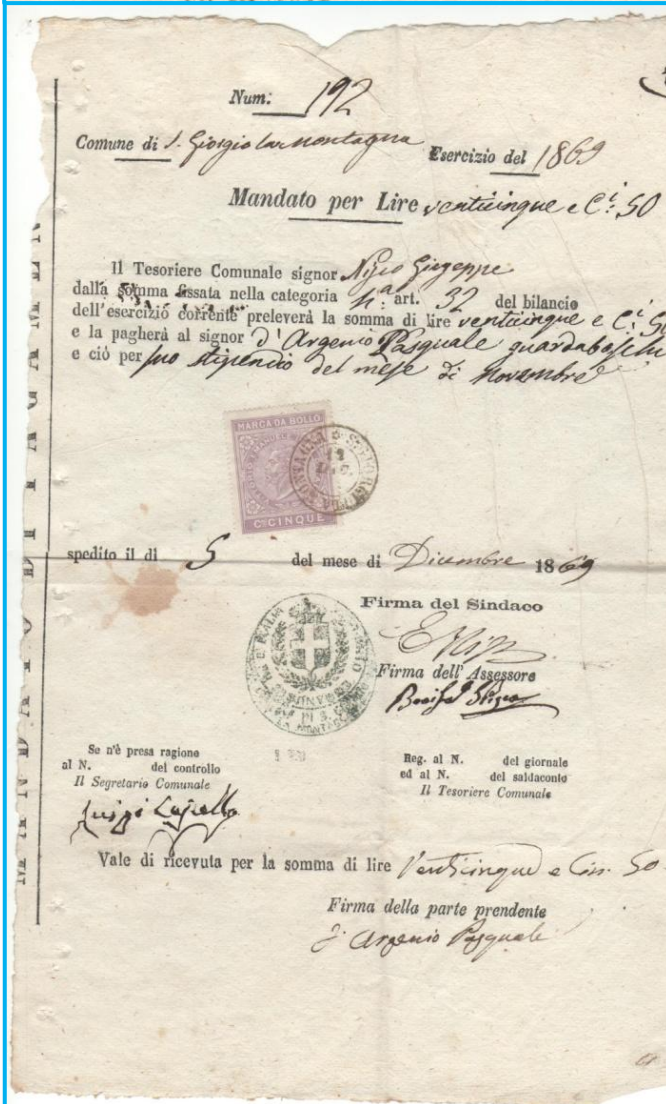 Num: 192
Comune di S. Giorgio la montagna Esercizio del 1869
Mandato per Lire venticinque e C.i: 50
Il Tesoriere Comunale signor Nisco Giuseppe
dalla somma fissata nella categoria art. 32 del bilancio
dell'esercizio corrente preleverà la somma di lire venticinque e C.i 50
e la pagherà al signor d'Argenio Pasquale guardaboschi
e ciò per suo stipendio del mese di novembre
MARCA DA BOLLO
CMI CINQUE
spedito il di 5 del mese di Dicembre 1869
Firma del Sindaco
Firma dell'Assessore
Se n'è presa ragione
al N. del controllo
Il Segretario Comunale
Luigi
Reg. al N. del giornale
ed al N. del saldaconto
Il Tesoriere Comunale
Vale di ricevuta per la somma di lire Venticinque e Cen. 50
Firma della parte prendente
d'Argenio Pasquale